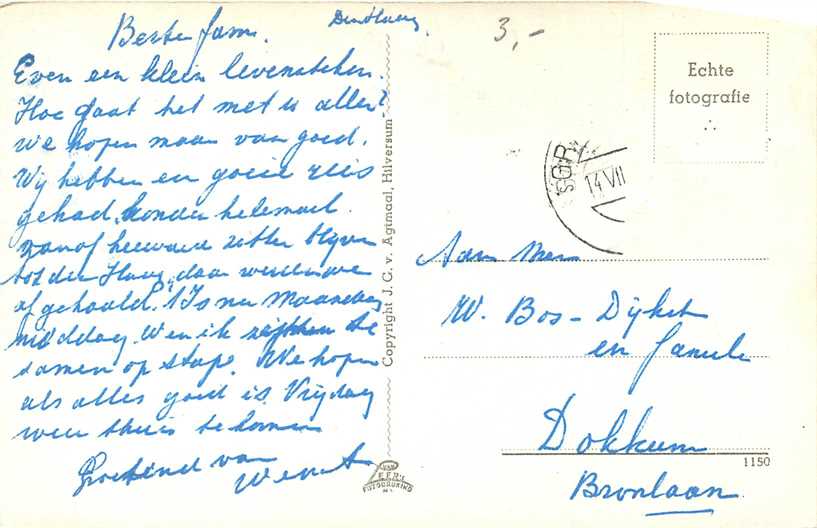 Den Haag.
3,-
Beste fam.
Even een klein levensteken.
Hoe gaat het met u allen?
We hopen maar van goed.
Wij hebben een goeie reis
gehad, konden helemaal
vanaf heerwaard zitten blijven
tot den Haag, daar werden we
afgehaald. 't Is nu Maandag
middag. W en ik zijn
samen op stap. We hopen
als alles goed is Vrijdag
weer thuis te komen
Groetend van
W en A
Copyright J. C. v. Agtmaal, Hilversum
VAN LEER'S
FOTODRUKIND
N.V.
Echte
fotografie
SGR
14 VII
Aan Mevr
W. Bos-Dijkst
en familie
Dokkum
1150
Bronlaan.